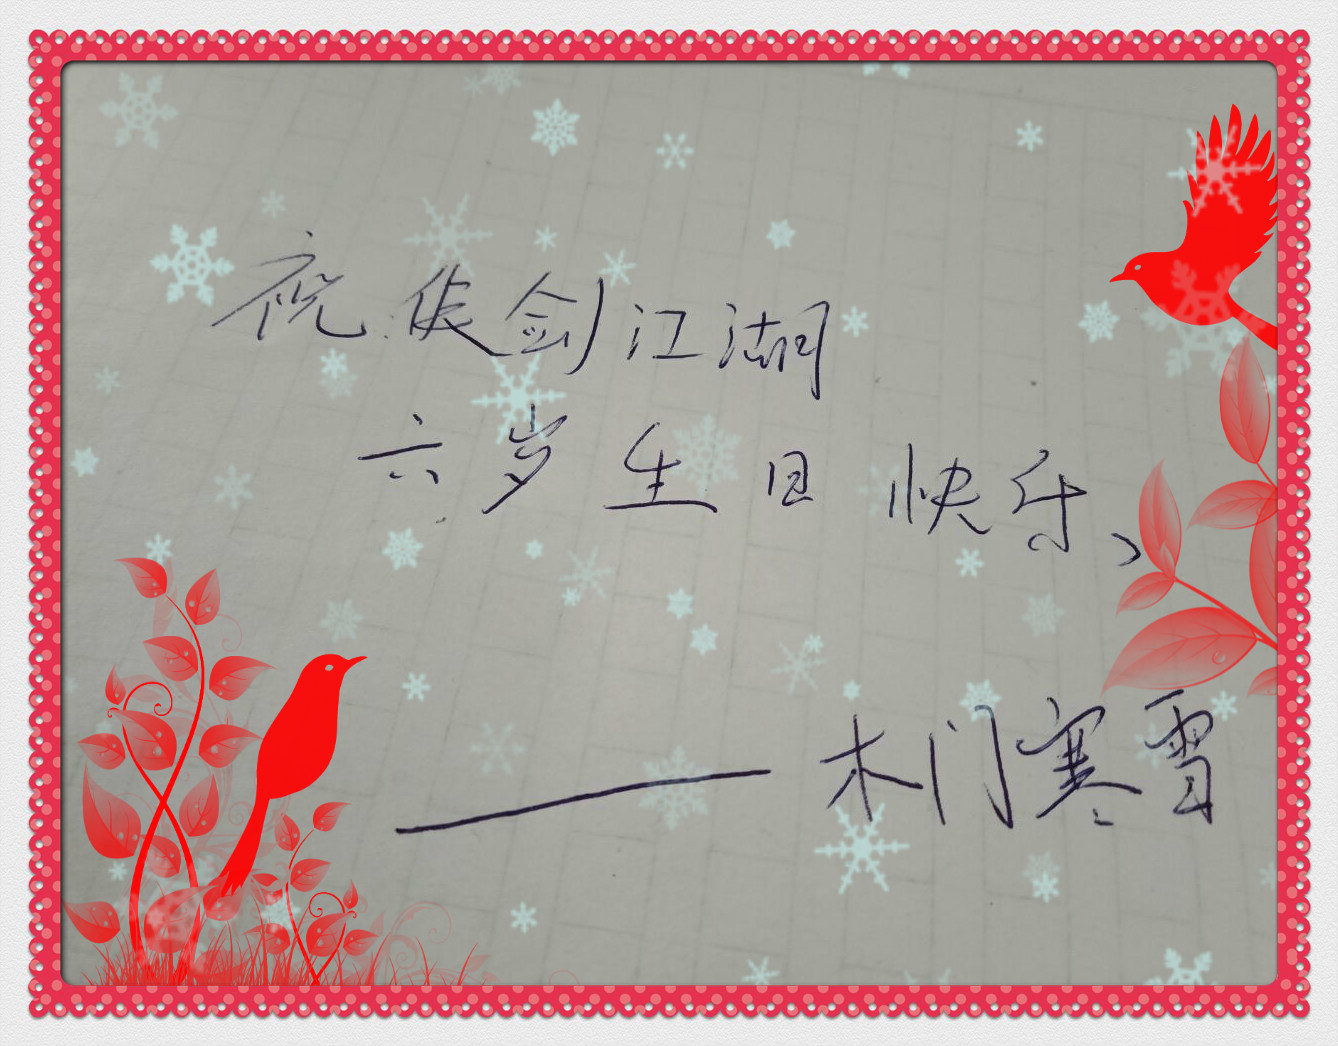 祝侠剑江湖
六岁生日快乐、
——木门寒雪